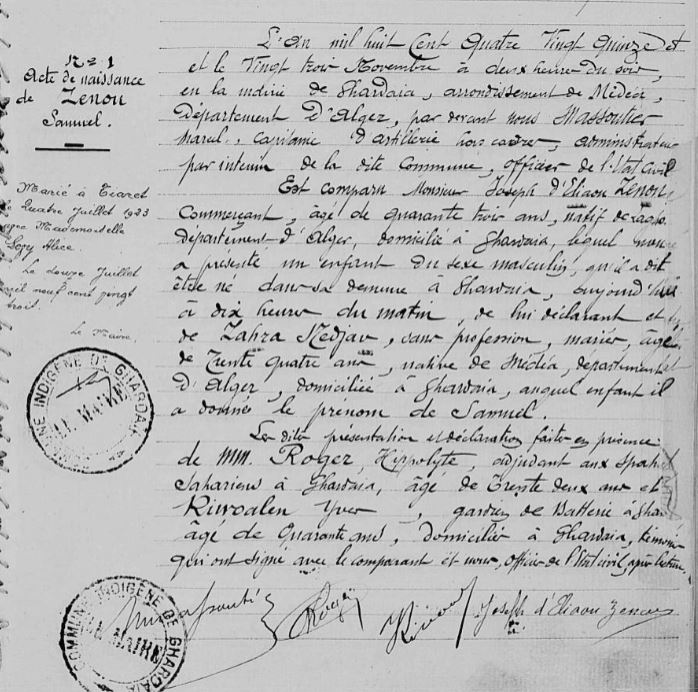 N° 1
Acte de naissance
de Zenou
Samuel.
Marié à Tiaret
le Quatre Juillet 1923
avec Mademoiselle
Alice
Le douze Juillet
mil neuf cent vingt
trois.
Le Maire
COMMUNE INDIGÈNE DE GHARDAIA
LE MAIRE
L'An mil huit Cent Quatre Vingt Quinze et
et le Vingt trois Novembre à deux heures du soir,
en la mairie de Ghardaia, arrondissement de Médéa,
Département d'Alger, par devant nous Massoutier
Marcel, Capitaine d'artillerie hors cadres, administrateur
par interim de la dite Commune, officier de l'Etat Civil
Est comparu Monsieur Joseph d'Eliaou Zenou
Commerçant, âgé de quarante trois ans, natif de
Département d'Alger, domicilié à Ghardaia, lequel nous
a présenté un enfant du sexe masculin, qu'il a dit
être né dans sa demeure à Ghardaia, aujourd'hui
à dix heures du matin, de lui déclarant et
de Zahra Nedjar, sans profession, mariée, âgée
de Trente quatre ans, native de Médéa, département
d'Alger, domiciliée à Ghardaia, auquel enfant il
a donné le prénom de Samuel.
Les dites présentation et déclaration faites en présence
de MM. Roger Hippolyte, adjudant aux Spahis
Sahariens à Ghardaia, âgé de Trente deux ans et
Rivoalen Yves, gardien de Batterie à Ghar
âgé de Quarante ans, domiciliés à Ghardaia, témoins
qui ont signé avec le comparant et nous, officier de l'Etat civil, après lecture.
Roger
Joseph d'Eliaou Zenou
COMMUNE INDIGÈNE DE GHARDAIA
LE MAIRE